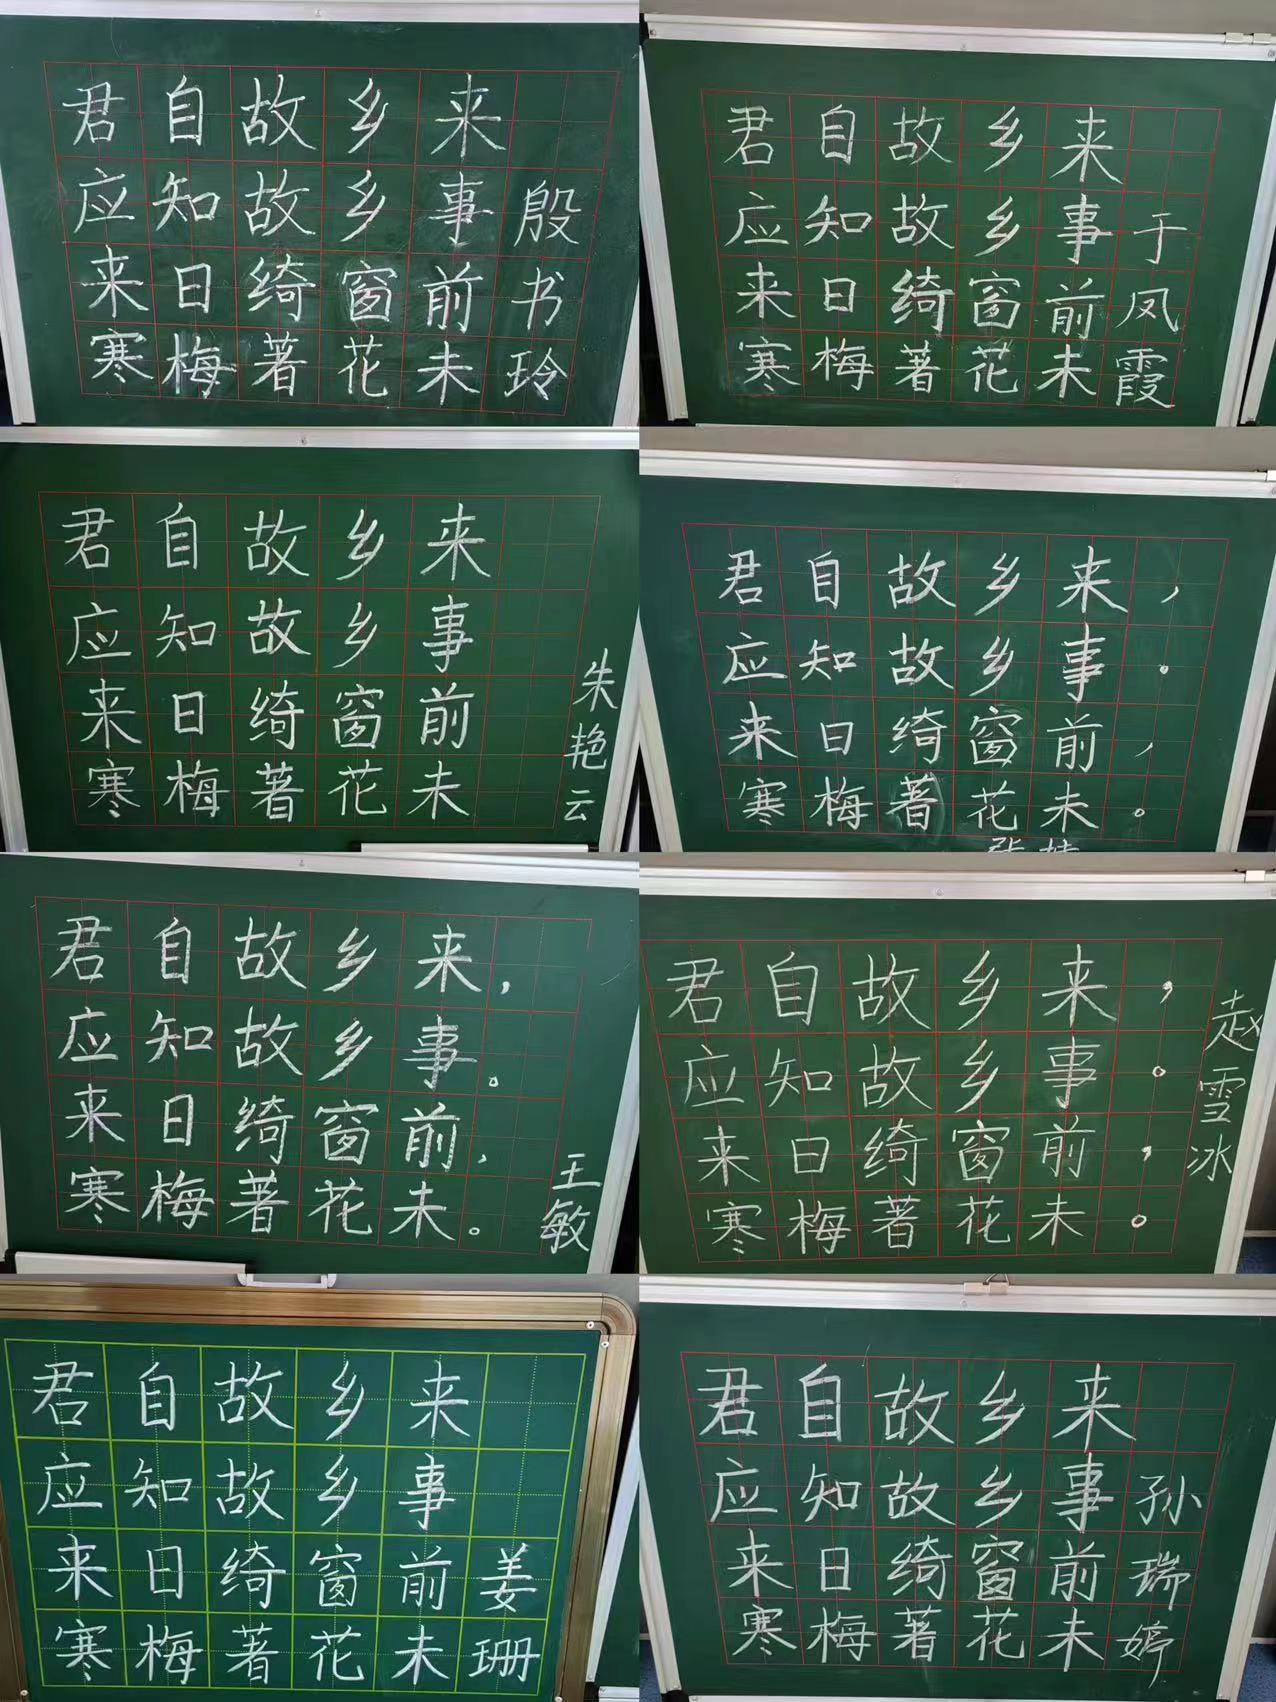 君自故乡来
应知故乡事
来日绮窗前
寒梅著花未
殷书玲
君自故乡来
应知故乡事
来日绮窗前
寒梅著花未
于凤霞
君自故乡来
应知故乡事
来日绮窗前
寒梅著花未
朱艳云
君自故乡来，
应知故乡事。
来日绮窗前，
寒梅著花未。
君自故乡来，
应知故乡事。
来日绮窗前，
寒梅著花未。
王敏
君自故乡来，
应知故乡事。
来日绮窗前，
寒梅著花未。
赵雪冰
君自故乡来
应知故乡事
来日绮窗前
寒梅著花未
姜珊
君自故乡来
应知故乡事
来日绮窗前
寒梅著花未
孙瑞婷